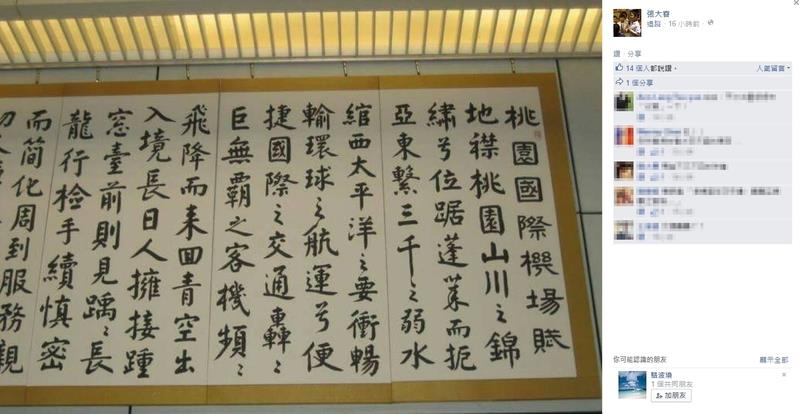 桃園國際機場賦
地襟桃園山川之錦
繡兮位踞蓬萊而扼
亞東繫三千之弱水
綰西太平洋之要衝暢
輸環球之航運兮便
捷國際之交通轟〻
巨無霸之客機頻〻
飛降而来回青空出
入境長日人擁接踵
窓臺前則見踽〻長
龍行檢手續慎密
而簡化周到服務親
張大春
追蹤 · 16 小時前 ·
讚 · 分享
14 個人都說讚。 人氣留言
1 個分享
你可能認識的朋友 顯示全部
1 個共同朋友
加朋友